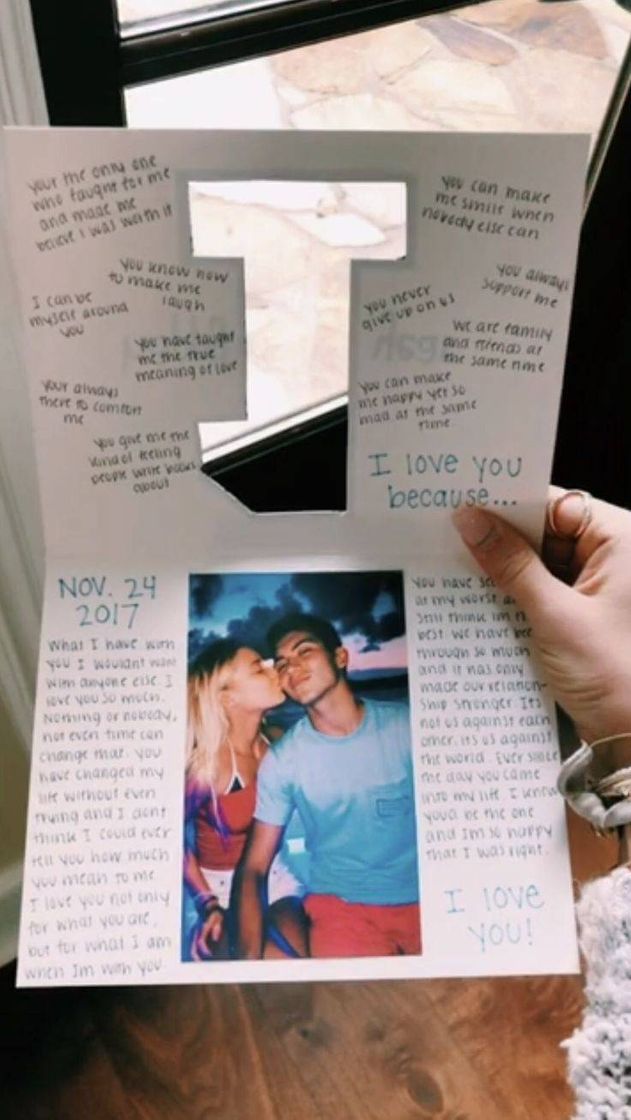 your the only one
who fought for me
and made me
believe I was worth it
you know how
to make me
laugh
I can be
myself around
you
you have taught
me the true
meaning of love
your always
there to comfort
me
you give me the
kind of feeling
people write books
about
you can make
me smile when
nobody else can
you always
support me
you never
give up on us
we are family
and friends at
the same time
you can make
me happy yet so
mad at the same
time
I love you
because...
NOV. 24
2017
What I have with
you I wouldnt want
with anyone else. I
love you so much.
Nothing or nobody,
not even time can
change that. you
have changed my
life without even
trying and I dont
think I could ever
tell you how much
you mean to me
I love you not only
for what you are,
but for what I am
when Im with you
you have
at my worst
still think im
best we have
through so much
and it has only
made our relation-
ship stronger. Its
not us against each
other, its us against
the world. Ever since
the day you came
into my life I knew
youd be the one
and Im so happy
that I was right.
I love
you!